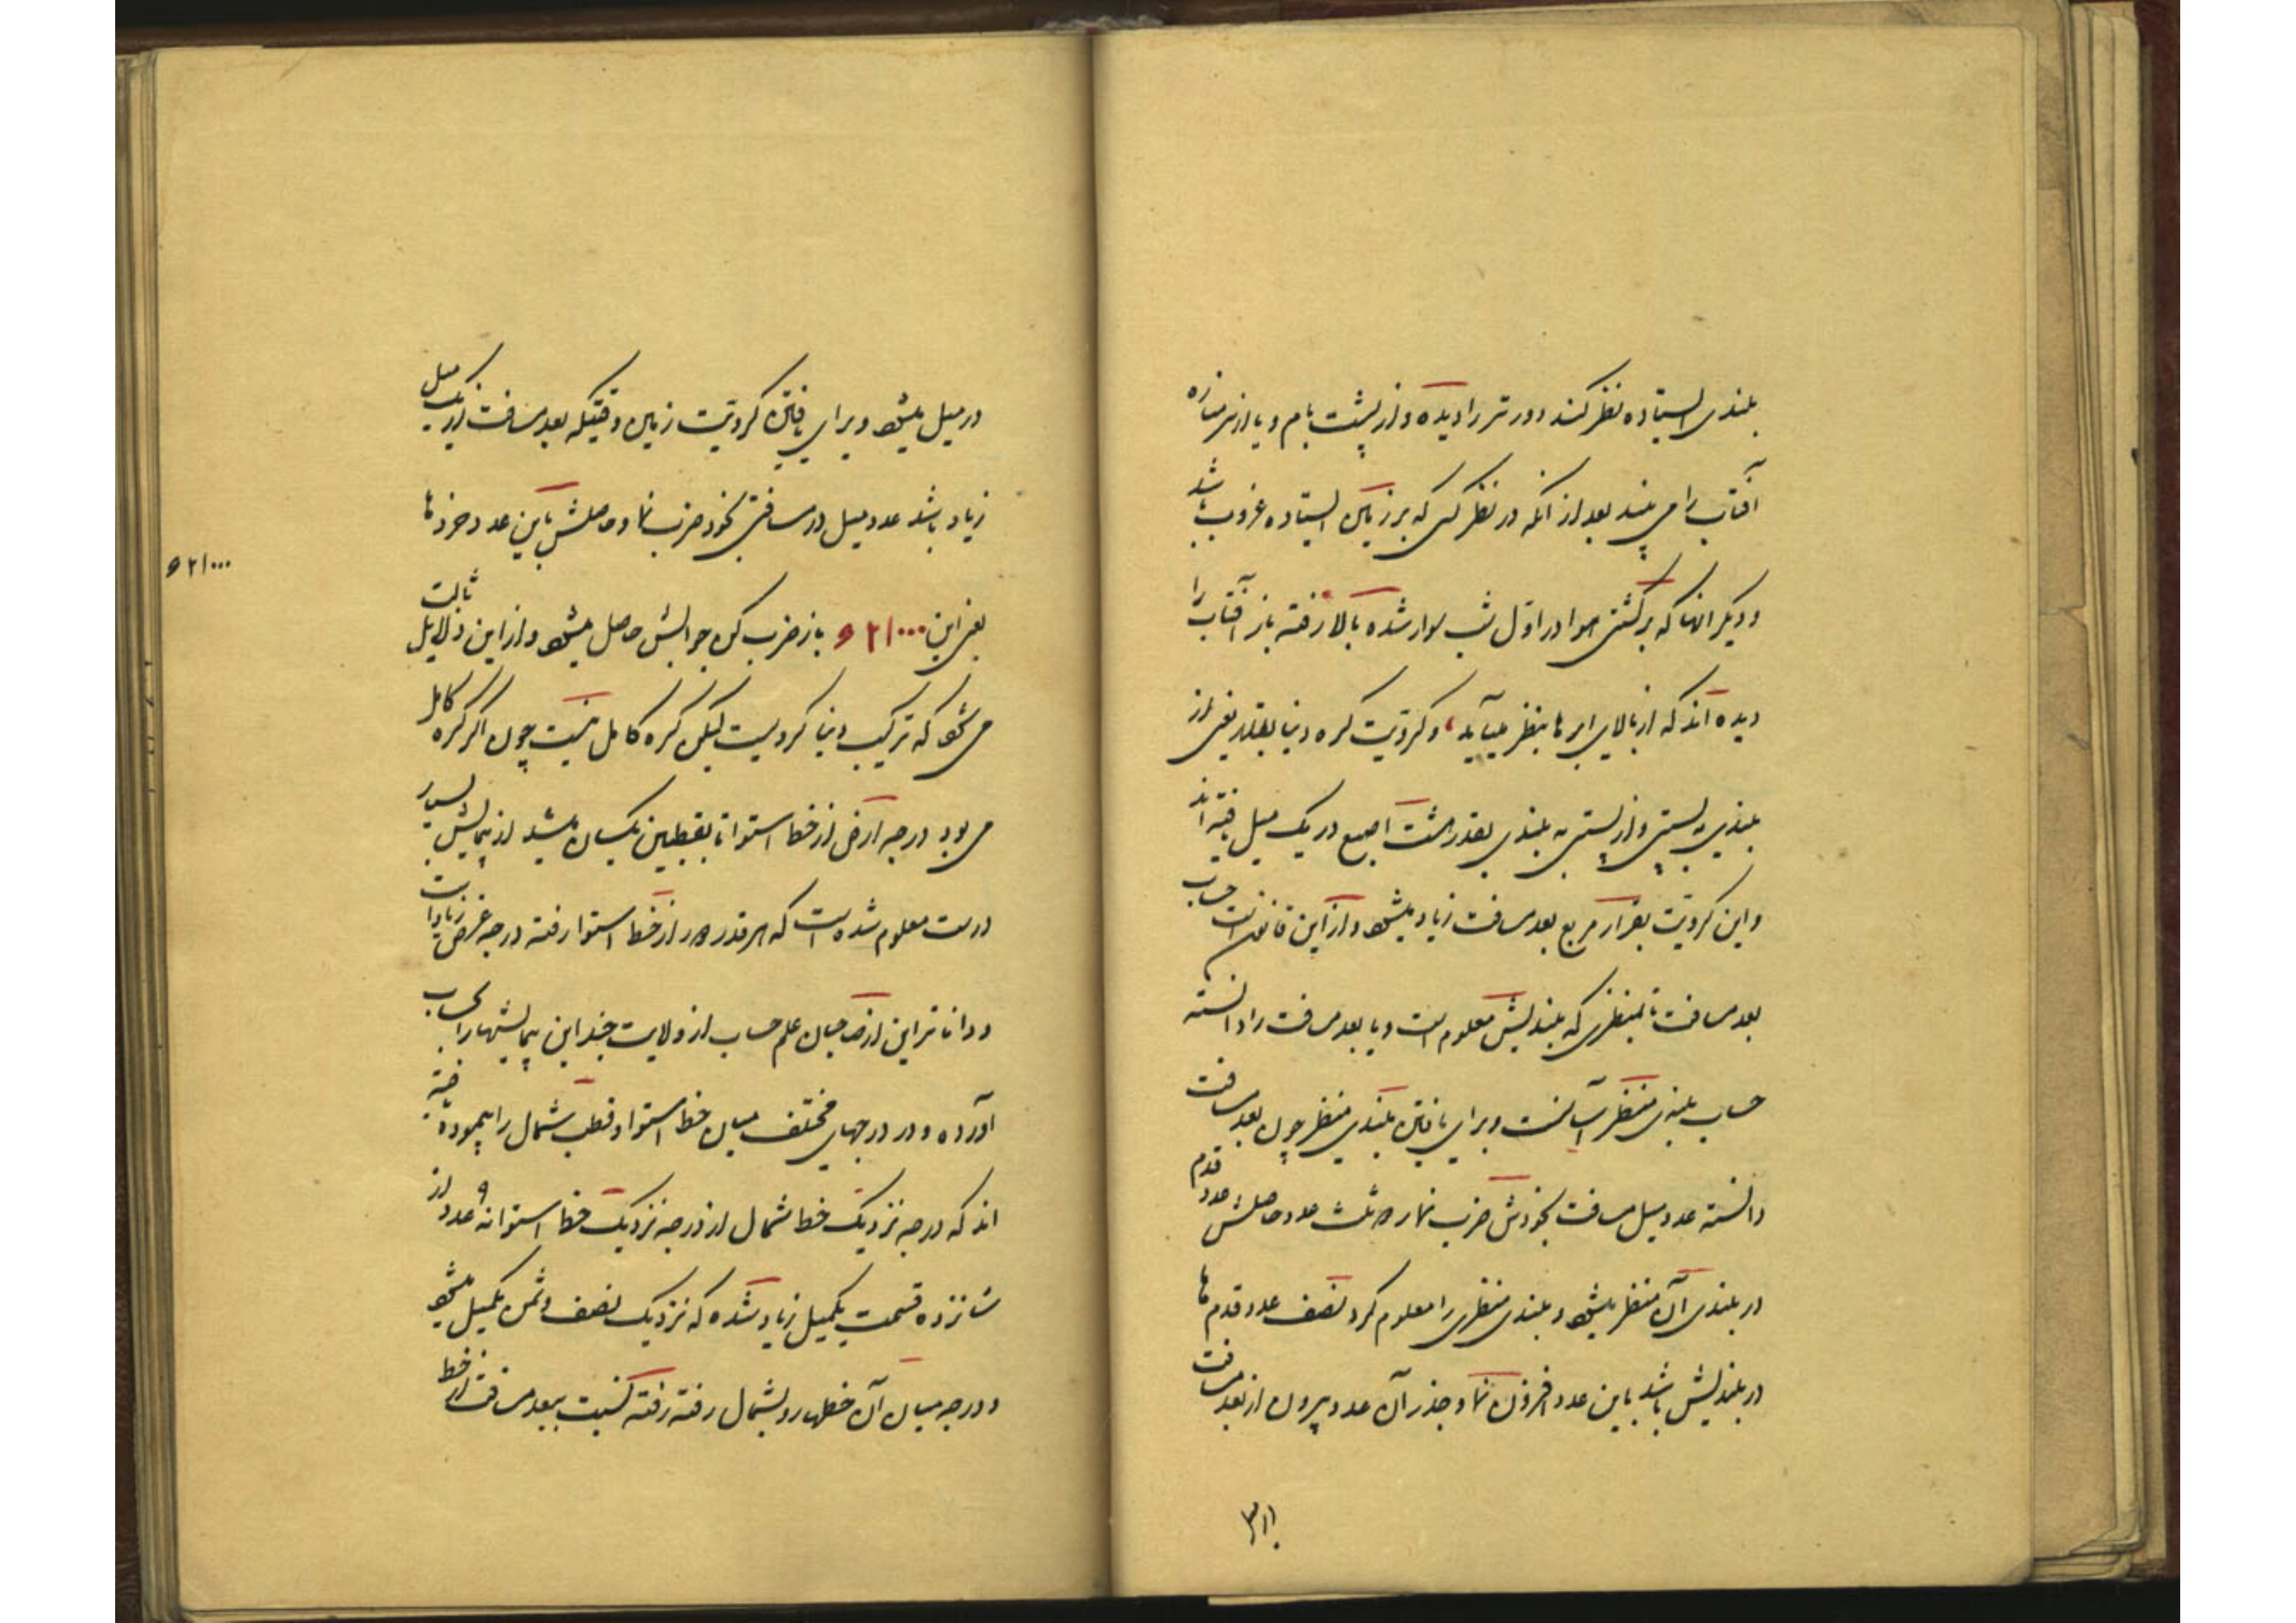 بلندی ایستاده نظر کند دورتر را دیده و از پشت بام و یا از سر مناره
آفتاب را می بیند بعد از آنکه در نظر کسی که بر زمین ایستاده غروب باشد
و دیگر آنها که بر کشتی هوا در اول شب سوار شده بالا رفته باز آفتاب را
دیده اند که از بالای ابرها بنظر میآید و کرویت کره دنیا بقدر یعنی از
بلندی به پستی و از پستی به بلندی بقدر هشت اصبع در یک میل یافته اند
و این کرویت بقرار مربع بعد مسافت زیاد میشود و از این قانون است حساب
بعد مسافت تا بمنظری که بلندیش معلوم است و یا بعد مسافت را دانسته
حساب بلندی منظر آسانست و برای یافتن بلندی منظر چون بعد مسافت
دانسته عدد میل مسافت بخودش ضرب نما و ثلث عدد حاصلش عدد قدم
در بلندی آن منظر میشود و بلندی منظری را معلوم کرد نصف عدد قدم ها
در بلندیش باشد باین عدد افزون نما و جذر آن عدد بیرون از بعد مسافت
در میل
در میل میشود و برای یافتن کرویت زمین وقتیکه بعد مسافت از یک میل
زیاد باشد عدد میل در مسافتی بخود ضرب نما و حاصلش باین عدد خردها
۶۲۱۰۰۰
یعنی این ۶۲۱۰۰۰ باز ضرب کن جوابش حاصل میشود و از این دلایل ثابت
می شود که ترکیب دنیا کرویست لیکن کره کامل نیست چون اگر کره کامل
می بود درجه ارض از خط استوا تا بقطبین یکسان میشد از پیمایش بسیار
درست معلوم شده است که هر قدر دور از خط استوا رفته درجه عرض زیاد است
و داناتر این از صاحبان علم حساب از ولایت چند این پیمایشها را بحساب
آورده و در درجهای مختلف میان خط استوا و قطب شمال را پیموده یافته
اند که درجه نزدیک خط شمال از درجه نزدیک خط استوا نه ۹ عدد از
شانزده قسمت یکمیل زیاد شده که نزدیک نصف و ثمن یکمیل میشود
و درجه میان آن خطها رو بشمال رفته رفته نسبت ببعد مسافت از خط